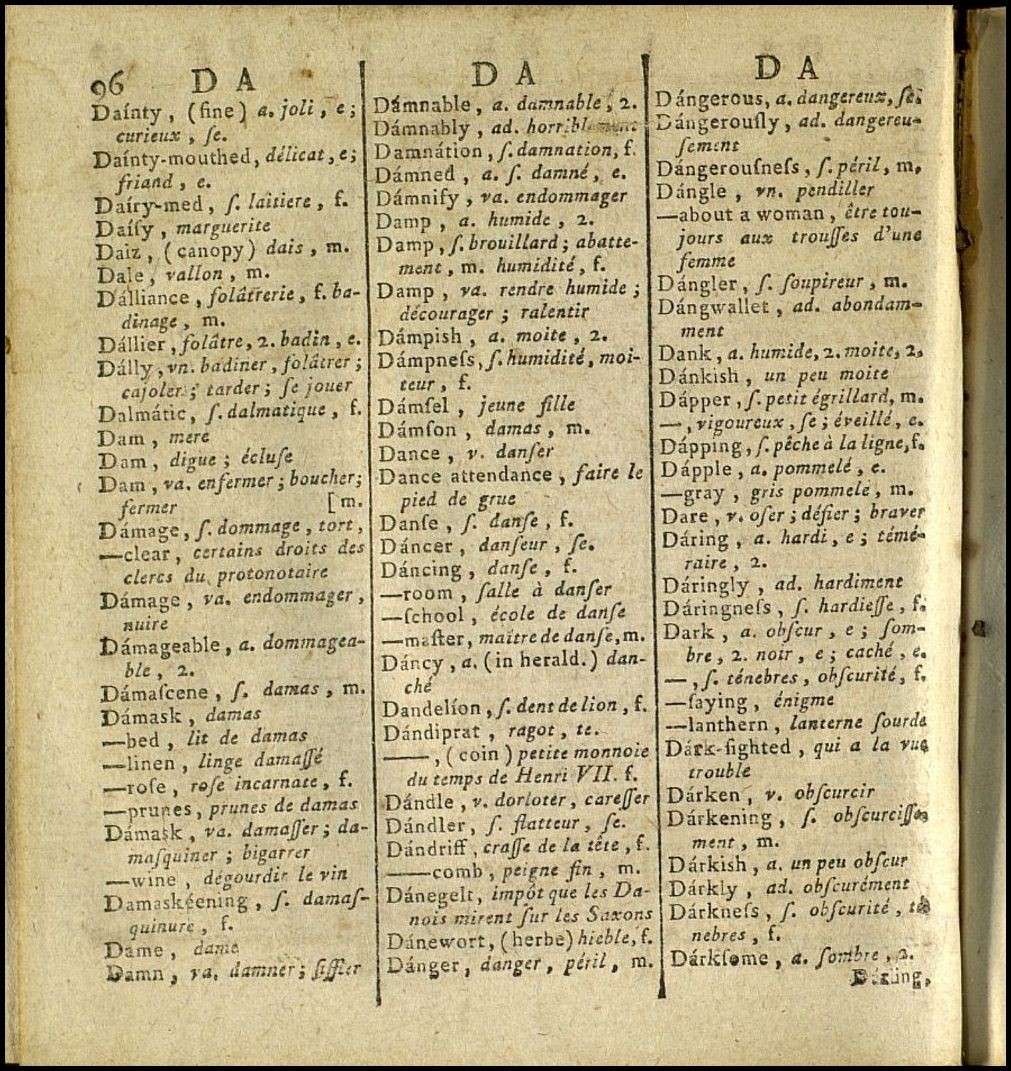 96 D A
Daínty, (fine) a. joli, e;
curieux, ſe.
Daínty-mouthed, délicat, e;
friand, e.
Daíry-med, ſ. laitiere, f.
Daiſy, marguerite
Daiz, (canopy) dais, m.
Dale, vallon, m.
Dálliance, folâtrerie, f. ba-
dinage, m.
Dállier, folâtre, 2. badin, e.
Dálly, vn. badiner, folâtrer;
cajoler; tarder; ſe jouer
Dalmátic, ſ. dalmatique, f.
Dam, mere
Dam, digue; écluſe
Dam, va. enfermer; boucher;
fermer [m.
Dámage, ſ. dommage, tort,
—clear, certains droits des
clercs du protonotaire
Dámage, va. endommager,
nuire
Dámageable, a. dommagea-
ble, 2.
Dámaſcene, ſ. damas, m.
Dámask, damas
—bed, lit de damas
—linen, linge damaſſé
—roſe, roſe incarnate, f.
—prunes, prunes de damas
Dámask, va. damaſſer; da-
maſquiner; bigarrer
—wine, dégourdir le vin
Damaskéening, ſ. damaſ-
quinure, f.
Dame, dame
Damn, va. damner; ſiffler
D A
Dámnable, a. damnable, 2.
Dámnably, ad. horriblement
Damnátion, ſ. damnation, f.
Dámned, a. ſ. damné, e.
Dámnify, va. endommager
Damp, a. humide, 2.
Damp, ſ. brouillard; abatte-
ment, m. humidité, f.
Damp, va. rendre humide;
décourager; ralentir
Dámpish, a. moite, 2.
Dámpneſs, ſ. humidité, moi-
teur, f.
Dámſel, jeune fille
Dámſon, damas, m.
Dance, v. danſer
Dance attendance, faire le
pied de grue
Danſe, ſ. danſe, f.
Dáncer, danſeur, ſe.
Dáncing, danſe, f.
—room, ſalle à danſer
—ſchool, école de danſe
—maſter, maître de danſe, m.
Dáncy, a. (in herald.) dan-
ché
Dandelíon, ſ. dent de lion, f.
Dándiprat, ragot, te.
——, (coin) petite monnoie
du temps de Henri VII. f.
Dándle, v. dorloter, careſſer
Dándler, ſ. flatteur, ſe.
Dándriff, craſſe de la tête, f.
——comb, peigne fin, m.
Dánegelt, impôt que les Da-
nois mirent ſur les Saxons
Dánewort, (herbe) hieble, f.
Dánger, danger, péril, m.
D A
Dángerous, a. dangereux, ſe.
Dángerouſly, ad. dangereu-
ſement
Dángerouſneſs, ſ. péril, m.
Dángle, vn. pendiller
—about a woman, être tou-
jours aux trouſſes d'une
femme
Dángler, ſ. ſoupireur, m.
Dángwallet, ad. abondam-
ment
Dank, a. humide, 2. moite, 2.
Dánkish, un peu moite
Dápper, ſ. petit égrillard, m.
—, vigoureux, ſe; éveillé, e.
Dápping, ſ. pêche à la ligne, f.
Dápple, a. pommelé, e.
—gray, gris pommelé, m.
Dare, v. oſer; défier; braver
Dáring, a. hardi, e; témé-
raire, 2.
Dáringly, ad. hardiment
Dáringneſs, ſ. hardieſſe, f.
Dark, a. obſcur, e; ſom-
bre, 2. noir, e; caché, e.
—, ſ. ténebres, obſcurité, f.
—ſaying, énigme
—lanthern, lanterne ſourde
Dárk-ſighted, qui a la vue
trouble
Dárken, v. obſcurcir
Dárkening, ſ. obſcurciſſe-
ment, m.
Dárkish, a. un peu obſcur
Dárkly, ad. obſcurément
Dárkneſs, ſ. obſcurité, té-
nebres, f.
Dárkſome, a. ſombre, 2.
Dárling,